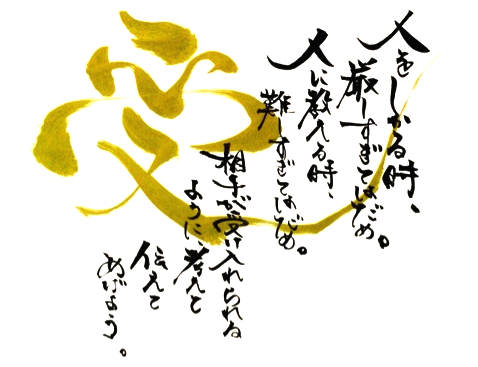 人をしかる時、
厳しすぎてはだめ。
人に教える時、
難しすぎてはだめ。
相手が受け入れられる
ように、考えて
伝えて
あげよう。
受